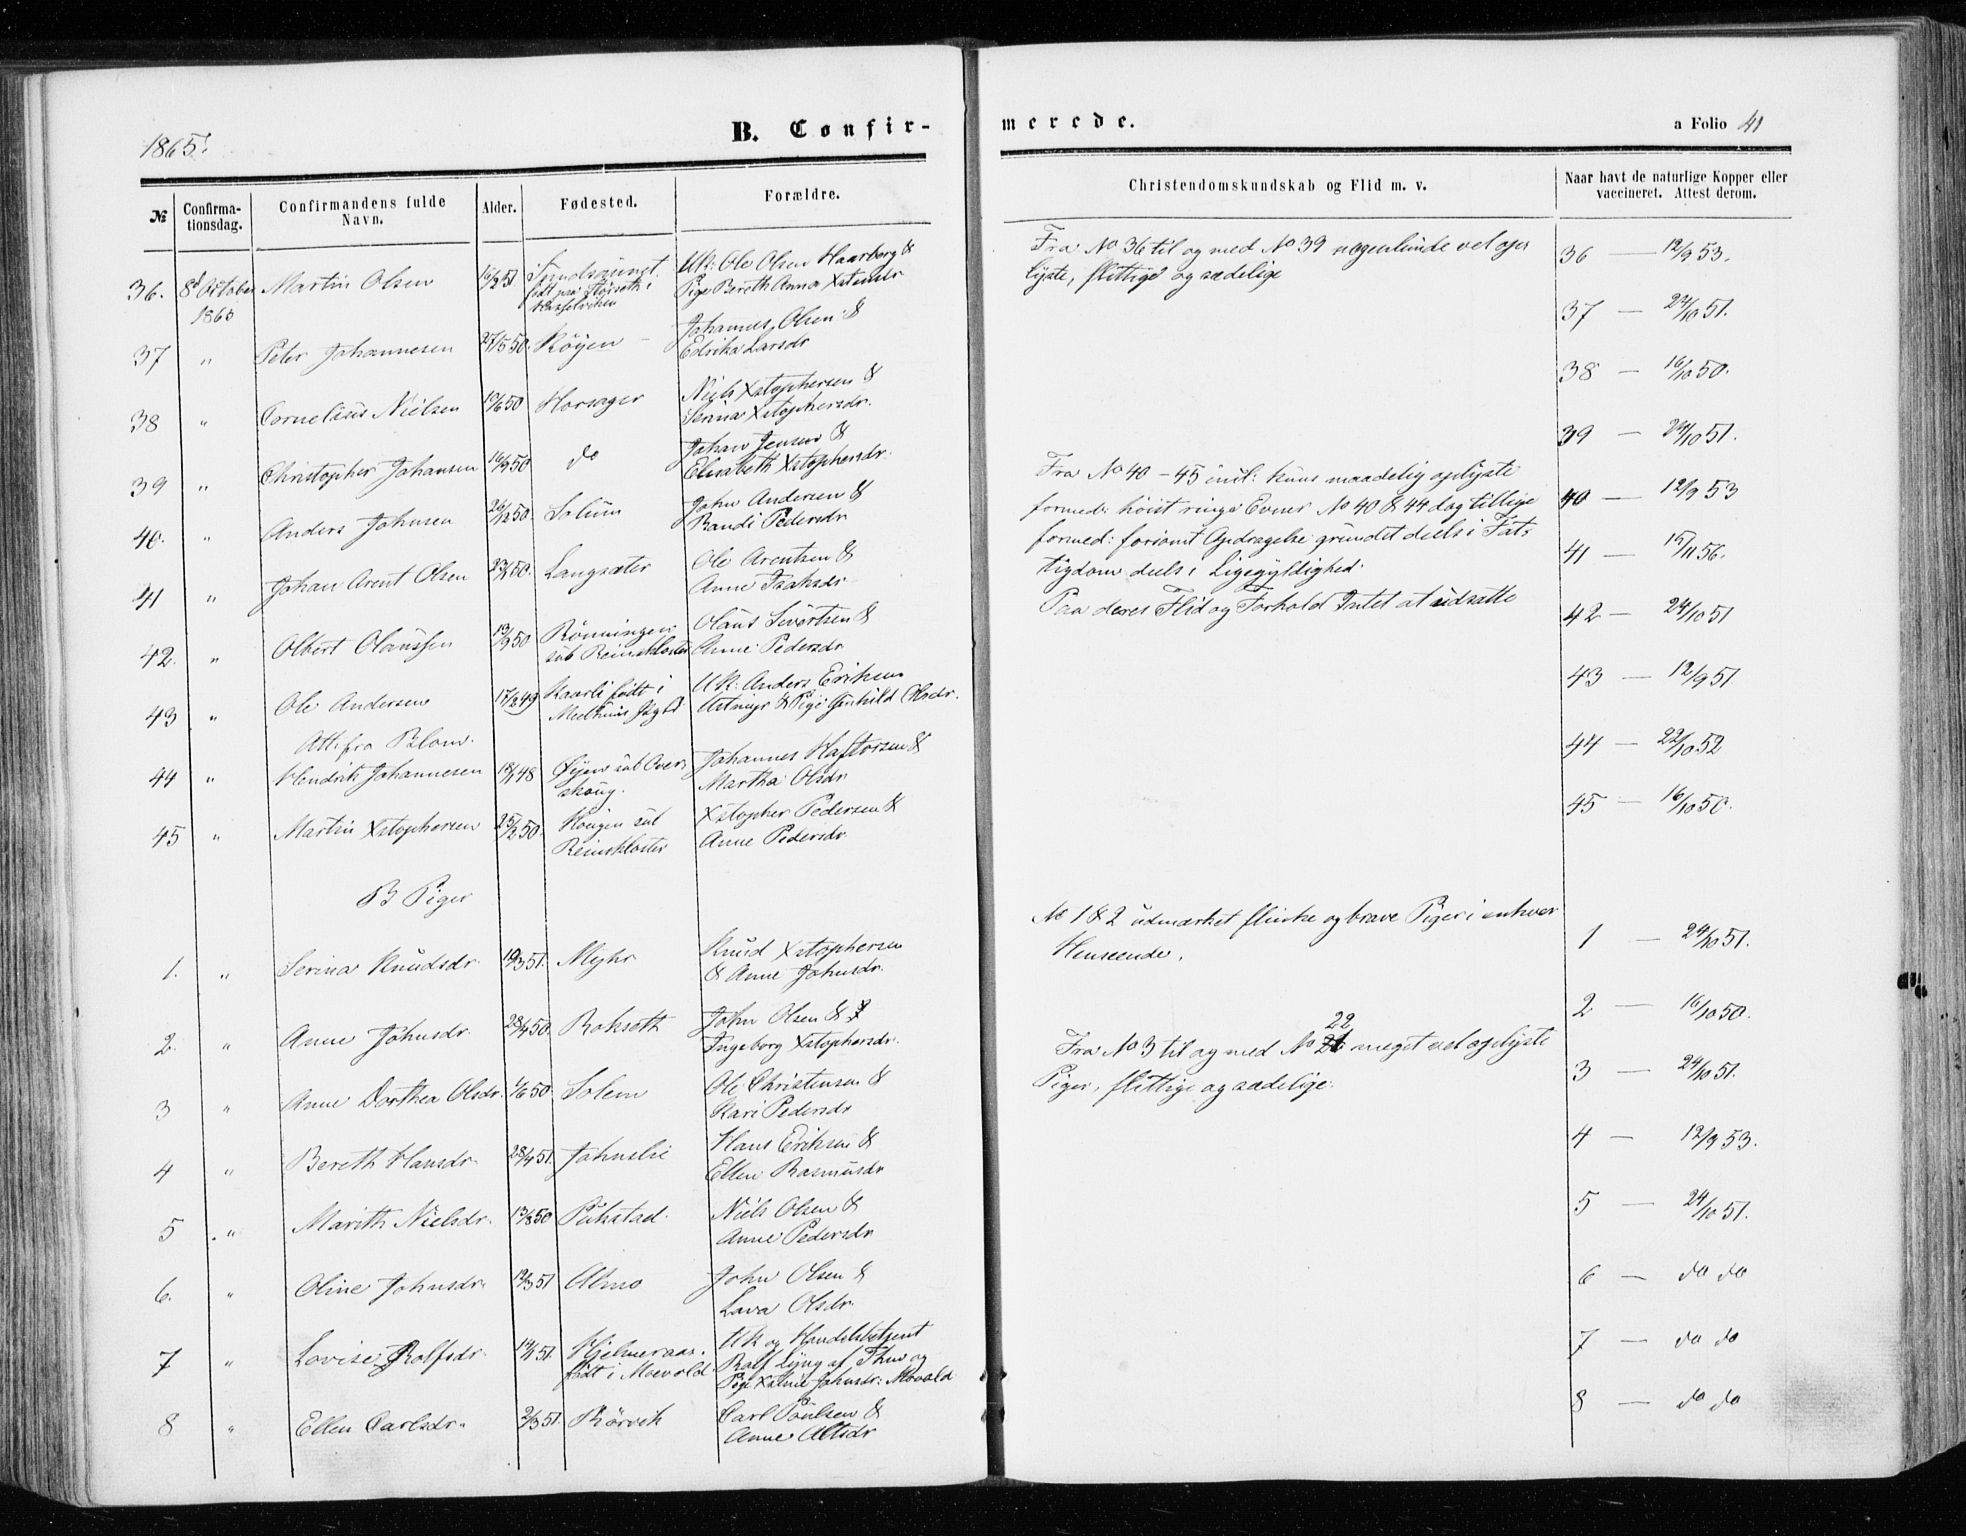 1865.
B. Confir-
№
Confirma-
tionsdag.
Confirmandens fulde
Navn.
Alder.
Fødested.
Forældre.
36. 8 October 1865 Martin Olsen 51 født paa i Uk: Ole Olsen Haarberg &
Pige Bereth Anna
37 " Peter Johannesen 27/5 50. Röyen Johannes Olsen &
Edrika Larsdr
38 " Cornelius Nielsen 50 Horsager Niels Xstophersen &
Serina Xstophersdr.
39 " Christopher Johansen 16/9 50 do Johan Jensen &
Elisabeth Xstophersdr.
40. " Anders Johnsen 26/12 50. Solum John Andersen &
Randi Pedersdr
41 " Johan Arent Olsen 50. Langsæter Ole Arentsen &
Anne Isaksdr
42. " Olbert Olaussen 13/9 50 Rönningen
sub Reinskloster Olaus Sivertsen &
Anne Pedersdr
43 " Ole Andersen 17/2 49 Kaarli født i
Meelhuus Uk: Anders Eriksen
& Pige Gunhild Olsdr.
Att: fra
44 " Hendrik Johannesen 18/1 48 Øyen sub Over
skoug. Johannes Haftorsen &
Martha Olsdr
45 " Martin Xstophersen 25/2 50. Hougen sub
Reinskloster Xstopher Pedersen &
Anne Pedersdr
B Piger
1. " Serina Knudsdr. 19/3 51. Myhr Knud Xstophersen
& Anne Johnsdr.
2. " Anne Johnsdr. 28/4 50. Rokseth John Olsen &
Ingeborg Xstophersdr.
3 " Anne Dorthea Olsdr. 1/6 50. Solem Ole Christensen &
Kari Pedersdr
4 " Bereth Hansdr. 28/4 51. Johnslie Hans Eriksen &
Ellen Rasmusdr
5 " Marith Nielsdr. 13/8 50 Pukstad. Niels Olsen &
Anne Pedersdr
6. " Oline Johnsdr. 51 Almo John Olsen &
Lava Olsdr.
7 " Lovise Rolfsdr. 51 Hjelmeraas.
født i Moevold Uk og Handelsbetjent
Rolf Lyng af Thm og
Pige Xstine Johnsdr: Movald
8 " Ellen Carlsdr. 2/3 51. Rörvik Carl Poulsen &
Anne Altsdr
merede.
a Folio 41
Christendomskundskab og Flid m. v.
Naar havt de naturlige Kopper eller
vaccineret. Attest derom.
Fra No 36 til og med No 39 nogenlunde vel op-
lyste, flittige og sædelige
Fra No 40 - 45 incl: kuns maadelig oplyste
formed: höist ringe Evner No 40 & 44 dog tillige
formed: forsömt Opdragelse grundet deels i Fat-
tigdom deels i Ligegyldighed.
Paa deres Flid og Forhold Intet at udsætte
No 1 & 2 udmærket flinke og brave Piger i enhver
Henseende.
Fra No 3 til og med No 22 meget vel oplyste
Piger, flittige og sædelige.
36 — 12/9 53.
37 — 24/10 51.
38 — 16/10 50.
39 — 24/10 51.
40 — 12/9 53
41 — 15/11 56.
42 — 24/10 51
43 — 12/9 51.
44 — 22/10 52
45 — 16/10 50.
1 — 24/10 51.
2 — 16/10 50.
3 — 24/10 51.
4 — 12/9 53.
5 — 24/10 51.
6 — do do
7 — do do
8 — do do